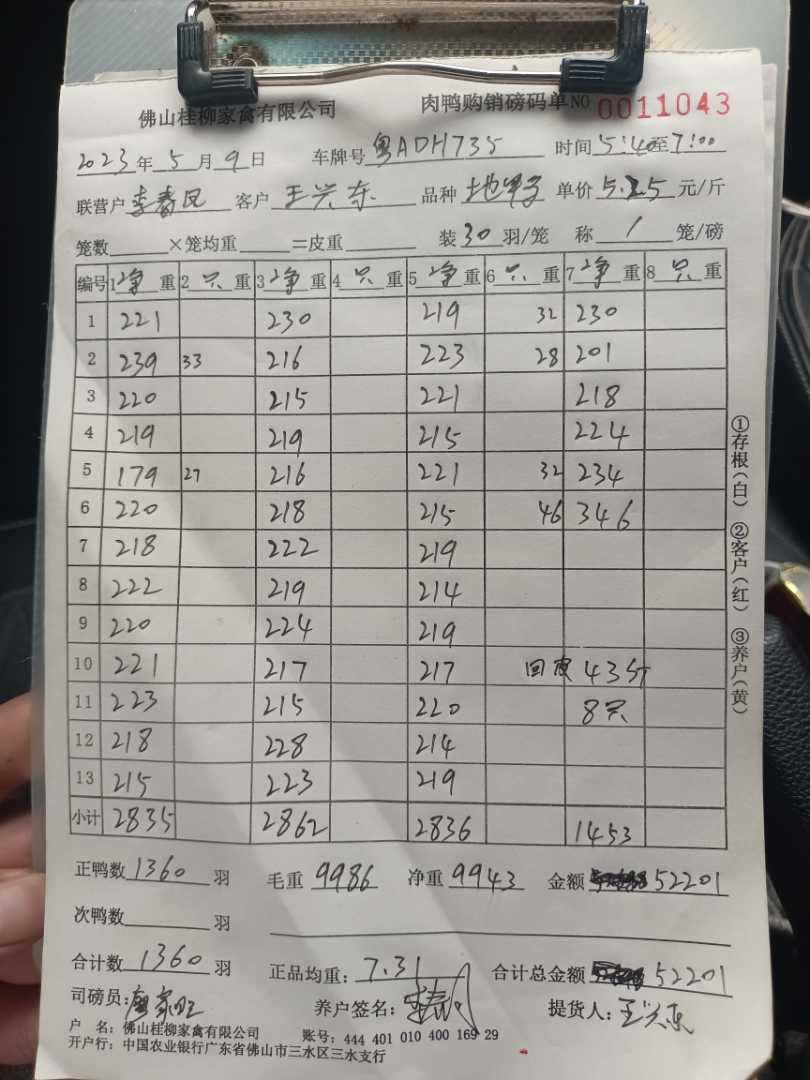 佛山桂柳家禽有限公司 肉鸭购销磅码单 NO 0011043
2023年5月9日 车牌号 粤ADH735 时间 5:40至7:00
联营户 李春凤 客户 王兴东 品种 单价 5.25 元/斤
笼数 ×笼均重 =皮重 装30羽/笼 称 1 笼/磅
编号 1净重 2只重 3净重 4只重 5净重 6只重 7净重 8只重
1 221 230 219 32 230
2 239 33 216 223 28 201
3 220 215 221 218
4 219 219 215 224
5 179 27 216 221 32 234
6 220 218 215 46 346
7 218 222 219
8 222 219 214
9 220 224 219
10 221 217 217 回皮 43斤
11 223 215 220 8只
12 218 228 214
13 215 223 219
小计 2835 2862 2836 1453
正鸭数 1360 羽 毛重 9986 净重 9943 金额 52201
次鸭数 羽
合计数 1360 羽 正品均重: 7.31 合计总金额 52201
司磅员: 养户签名: 提货人: 王兴东
户 名: 佛山桂柳家禽有限公司 账号: 444 401 010 400 169 29
开户行: 中国农业银行广东省佛山市三水区三水支行
①存根(白) ②客户(红) ③养户(黄)